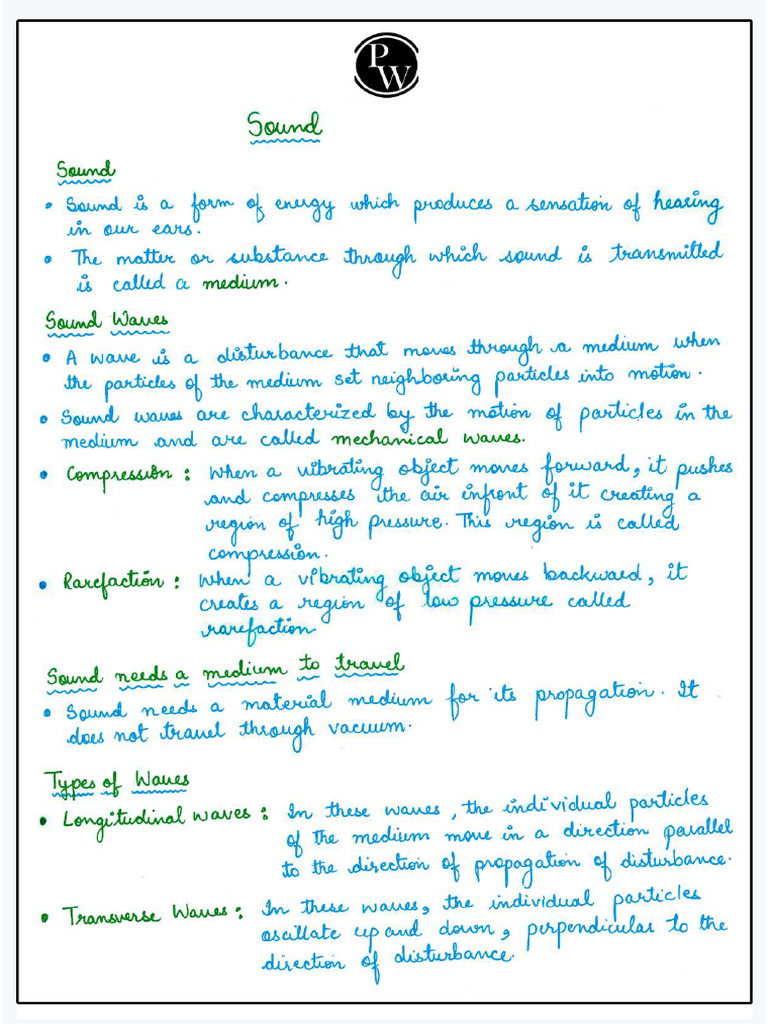 PW
Sound
Sound
• Sound is a form of energy which produces a sensation of hearing
in our ears.
• The matter or substance through which sound is transmitted
is called a medium.
Sound Waves
• A wave is a disturbance that moves through a medium when
the particles of the medium set neighboring particles into motion.
• Sound waves are characterized by the motion of particles in the
medium and are called mechanical waves.
• Compression : When a vibrating object moves forward, it pushes
and compresses the air infront of it creating a
region of high pressure. This region is called
compression.
• Rarefaction : When a vibrating object moves backward, it
creates a region of low pressure called
rarefaction.
Sound needs a medium to travel
• Sound needs a material medium for its propagation. It
does not travel through vacuum.
Types of Waves
• Longitudinal waves : In these waves, the individual particles
of the medium move in a direction parallel
to the direction of propagation of disturbance.
• Transverse Waves : In these waves, the individual particles
oscillate up and down, perpendicular to the
direction of disturbance.